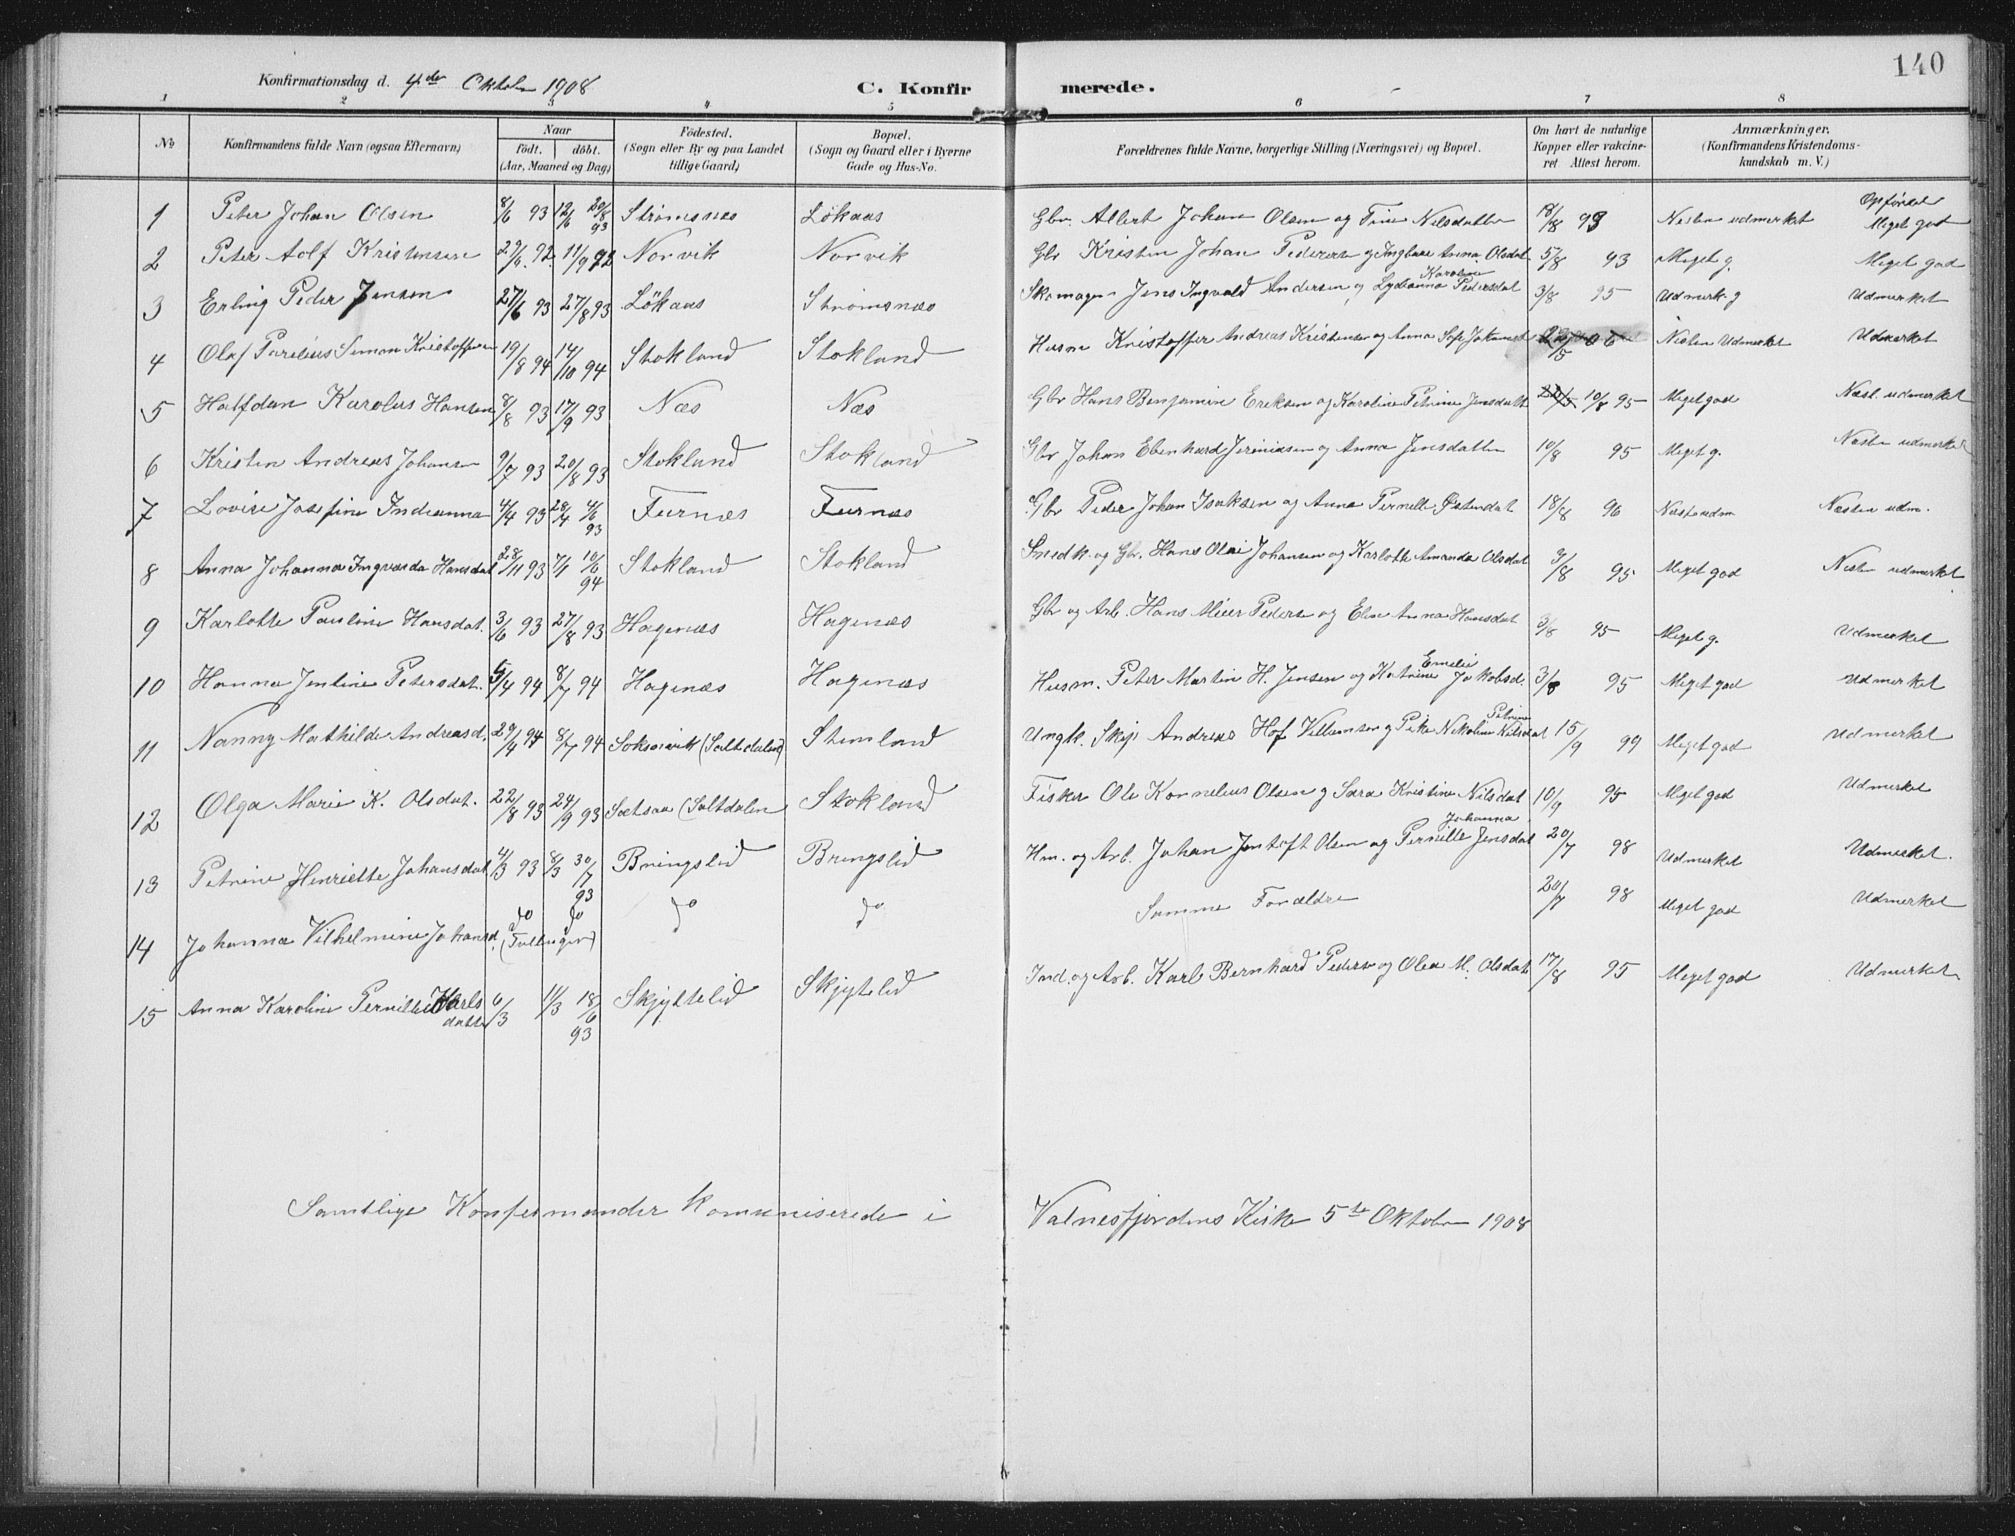 140
Konfirmationsdag d. 4de Oktober 1908
C. Konfirmerede.
1 2 3 4 5 6 7 8
No
Konfirmandens fulde Navn (ogsaa Efternavn)
Naar
födt. döbt.
(Aar, Maaned og Dag)
Födested.
(Sogn eller By og paa Landet
tillige Gaard)
Bopæl.
(Sogn og Gaard eller i Byerne
Gade og Hus-No.
Forældrenes fulde Navne, borgerlige Stilling (Næringsvei) og Bopæl.
Om havt de naturlige
Kopper eller vakcine-
ret Attest herom.
Anmærkninger.
(Konfirmandens Kristendoms-
kundskab m. V.)
Opförsel
1 Peter Johan Olsen 8/6 93 12/6 20/8 93 Strömsnæs Lökaas Gbr. Albert Johan Olsen og Trine Nilsdatter 18/8 93 Næsten udmerket Meget god
2 Peter Adolf Kristensen 92 11/9 92 Norvik Norvik Gbr Kristen Johan Pedersen og Ingbor Anna Olsdat 5/8 93 Meget g. Meget god
3 Erling Peder Jensen 27/6 93 27/8 93 Lökaas Strömsnæs Skomager Jens Ingvald Andersen og Lydianna Karoline Pedersdat 3/8 95 Udmerk. g Udmerket
4 Olaf Parelius Simon Kristoffersen 19/8 94 14/10 94 Stokland Stokland Husm Kristoffer Andreas Kristensen og Anna Sof. Johannsd 22/5 06 Næsten Udmerket Udmerket
5 Halfdan Karolus Hansen 8/8 93 17/9 93 Næs Næs Gbr Hans Benjamin Eriksen og Karoline Petrine Jensdatt 10/8 95 Meget god Næst. udmerket
6 Kristen Andreas Johansen 9/7 93 20/8 93 Stokland Stokland Gbr Johan Edenhard Jeremiasen og Anna Jensdatter 10/8 95 Meget g. Næsten udmerket
7 Lovise Josefine Indianna 4/4 93 28/4 4/6 93 Furnæs Furnæs Gbr Peder Johan Isaksen og Anna Pernelle Östensdat 18/8 96 Næsten udm Næsten udm.
8 Anna Johanna Ingvarda Hansdat 28/11 93 7/1 10/6 94 Stokland Stokland Smed k. og Gbr. Hans Olai Johansen og Karlotte Amanda Olsdat 9/8 95 Meget god Næsten udmerket
9 Karlotte Pauline Hansdat. 3/6 93 27/8 93 Hagenæs Hagenæs Gbr og Arb. Hans Meier Peders og Elen Anna Hansdat 3/8 95 Meget g. Udmerket
10 Hanna Jentine Petersdat. 5/4 94 8/7 94 Hagenæs Hagenæs Husm. Peter Martin H. Jensen og Katrine Emelie Jakobsd. 3/8 95 Meget god Udmerket
11 Nanny Mathilde Andreasd. 29/4 94 8/7 94 Soksenvik (Saltdalen) Stemland Ungk. Skip Andreas Hof Villumsen og Peka Nikoline Petrine Nilsdat 15/9 99 Meget god Udmerket
12 Olga Marie K. Olsdat. 22/8 93 24/9 93 Sætsaa (Saltdalen Stokland Fisker Ole Kornelius Olsen g Sara Kristine Nilsdat 10/9 95 Meget god Udmerket
13 Petrine Henriette Johansdat 4/3 93 8/3 30/7 93 Bringslid Bringslid Hm. og Arb. Johan Jentoft Olsen og Pernille Johanna Jensdat 20/7 98 Udmerket Udmerket.
14 Johanna Vilhelmine Johansd. do do (Tvillinger) do do Samme Forældre 20/7 98 Meget god Udmerket
15 Anna Karoline Pernille Karls datter 6/3 11/3 18/6 93 Skjyttelid Skjytelid Ind. og Arb. Karl Bernhard Peders og Olea M. Olsdat 17/8 95 Meget god Udmerket
Samtlige Konfirmander komuniserede i Valnesfjordens Kirke 5te Oktober 1908